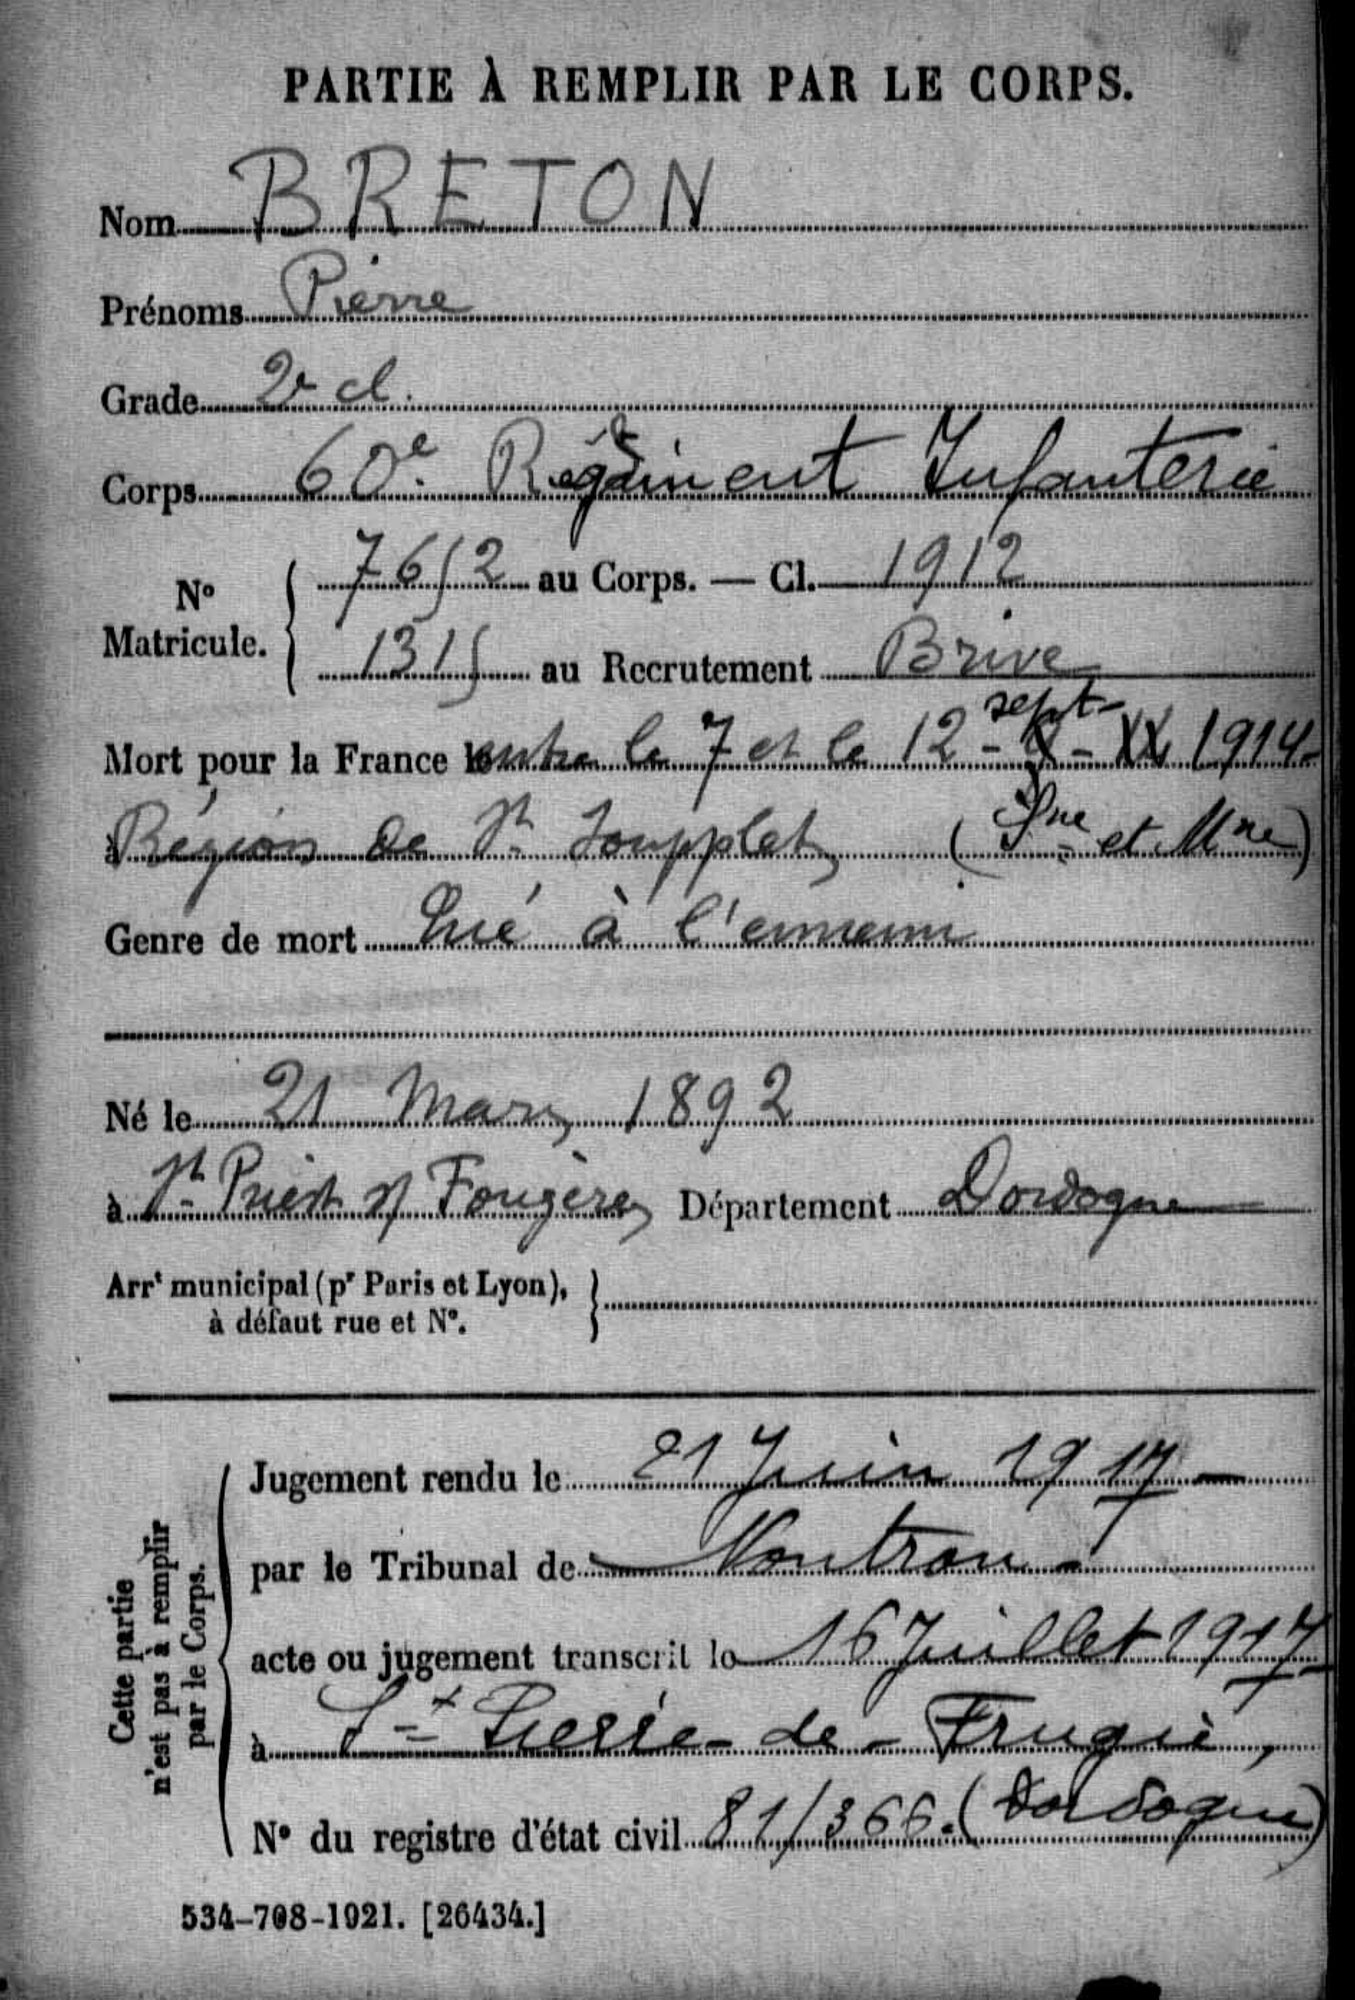 PARTIE À REMPLIR PAR LE CORPS.
Nom BRETON
Prénoms Pierre
Grade 2e cl.
Corps 60e Régiment Infanterie
No Matricule. 7652 au Corps. — Cl. 1912
1315 au Recrutement Brive
sept
Mort pour la France le entre le 7 et le 12 - - 1914
à Région de St Soupplets (Sne et Mne)
Genre de mort Tué à l'ennemi
Né le 21 Mars 1892
à St Priest s/ Fougères Département Dordogne
Arrt municipal (pr Paris et Lyon),
à défaut rue et No.
Cette partie
n'est pas à remplir
par le Corps.
Jugement rendu le 21 Juin 1917 —
par le Tribunal de Nontron -
acte ou jugement transcrit le 16 Juillet 1917
à St Pierre - de - Frugie,
No du registre d'état civil 81/366. (Dordogne)
534-708-1921. [26434.]